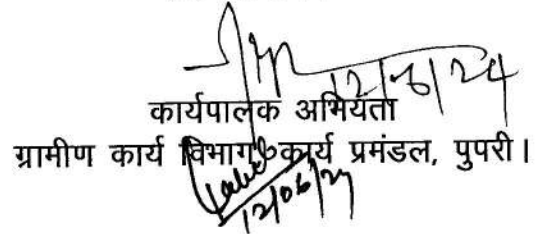 12/6/24
कार्यपालक अभियंता
ग्रामीण कार्य विभाग, कार्य प्रमंडल, पुपरी।
12/06/24